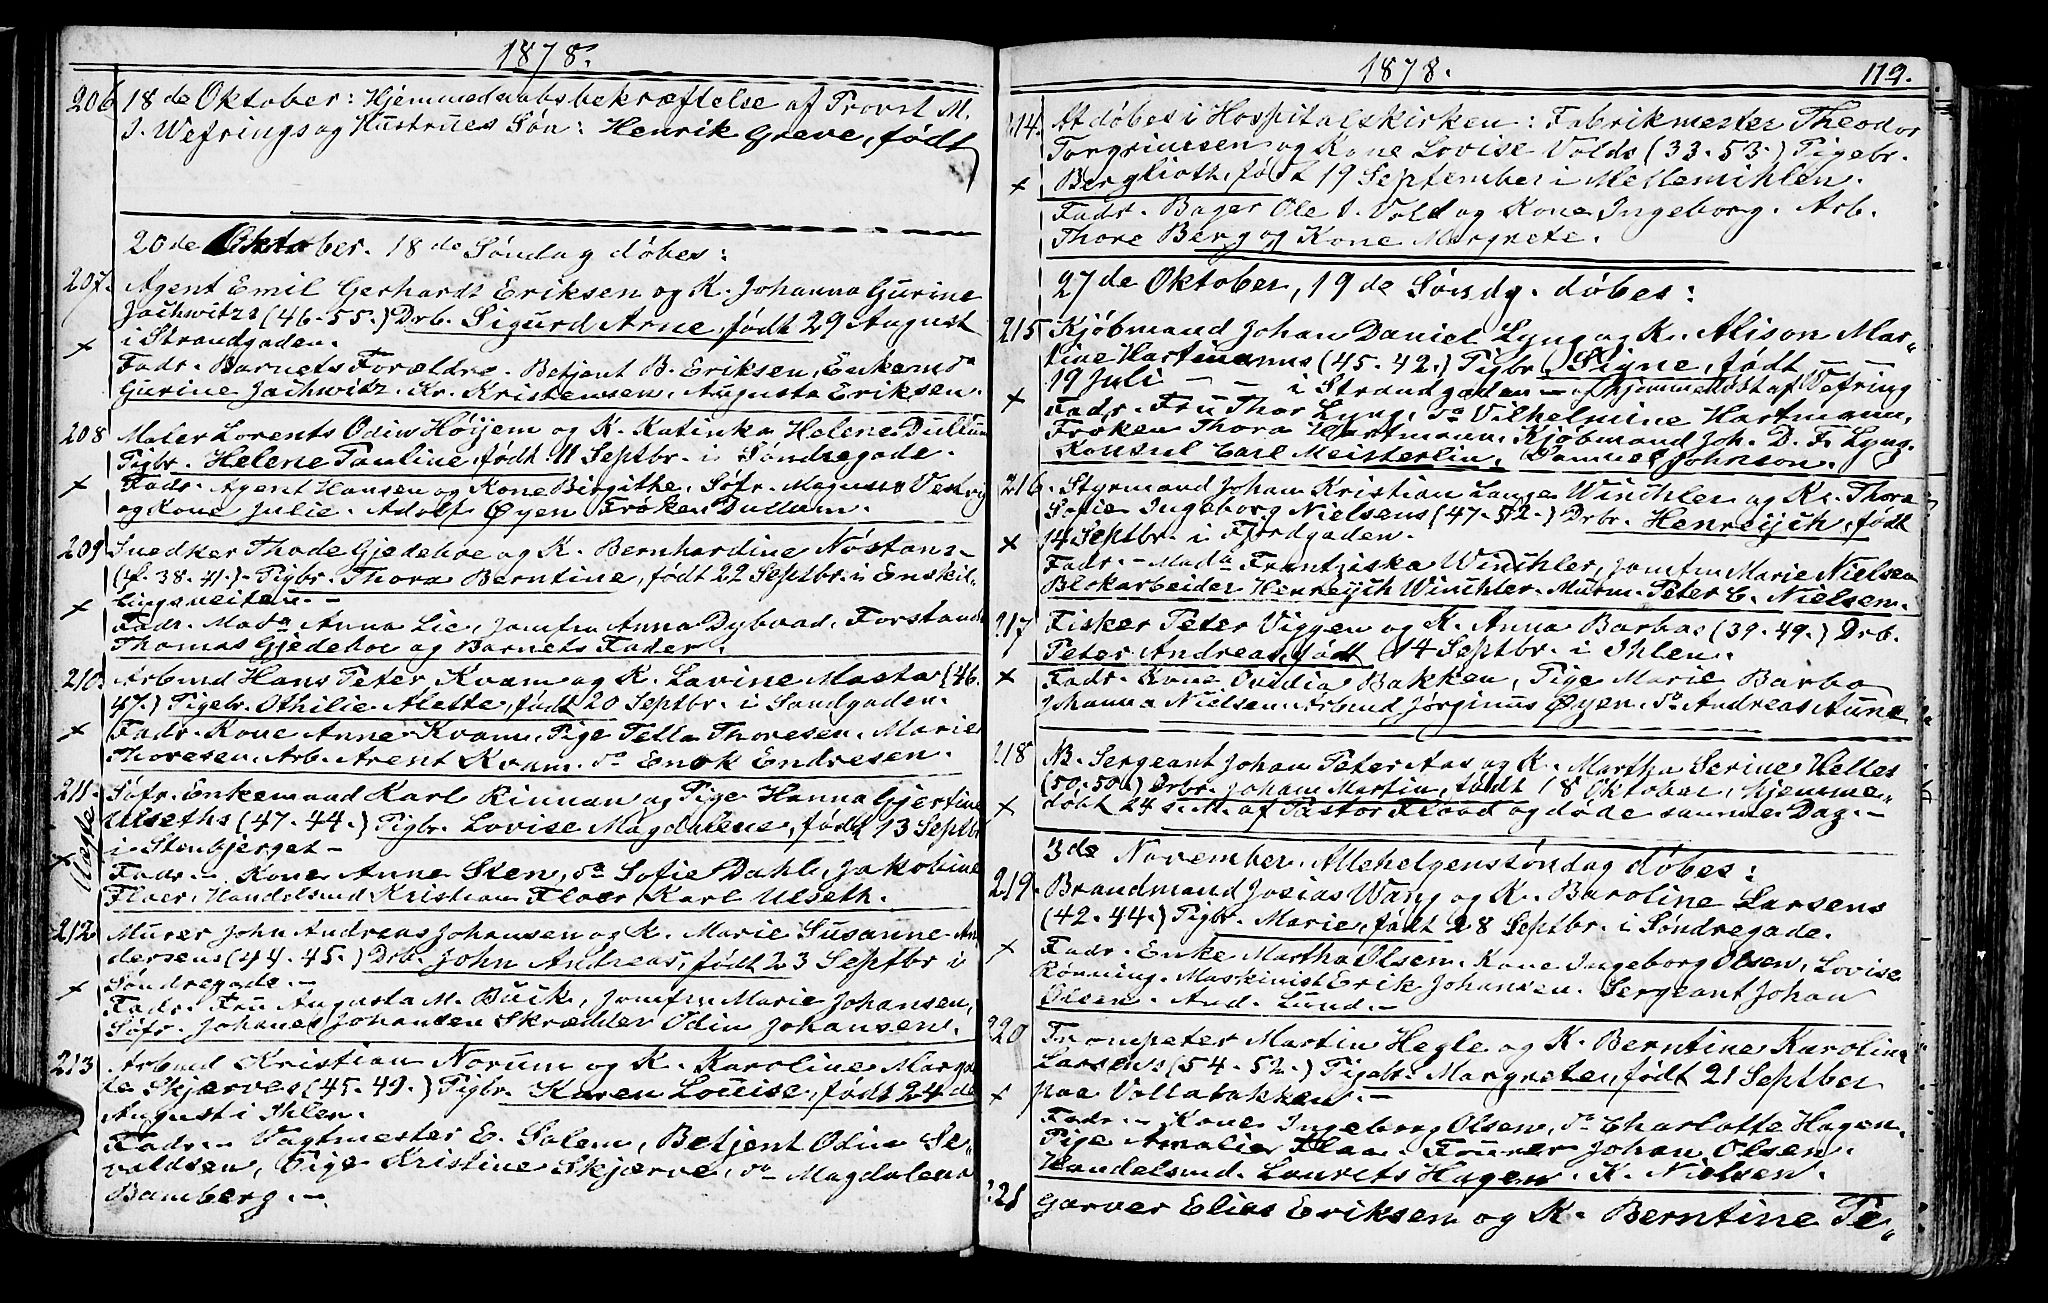 1878.
206 18de Oktober: Hjemmedaabsbekræftelse af Provst M.
J. Wefrings og Hustrues Søn: Henrik Greve, født
20de Oktober. 18de Søndag døbes:
207. Agent Emil Gerhardt Eriksen og K. Johanna Gurine
Jachwitzs (46-55.) Drb. Sigurd Arne, født 29 August
i Strandgaden.
+
Fadr. Barnets Forældre. Betjent B. Eriksen, Enkem. do
Gurine Jachwitz. Kr. Kristensen, Augusta Eriksen.
208 Maler Lorents Odin Høijem og K. Katinka Helene Dullum
Pigbr. Helene Pauline, født 11 Septbr. i Søndregade.
+ Fadr. Agent Hansen og Kone Birgithe, Søfr. Magnus
og Kone Julie. Adolf Øyen Frøken Dullum.
209 Snedker Thode Gjedeboe og K. Bernhardine Nøstans-
(f. 38. 41.)- Pigbr. Thora Berntine, født 22 Septbr. i Enskil-
lingsveiten.-
+
Fadr. Mada Anna Lie, Jomfru Anna Dybvad, Forstand.
Thomas Gjedeboe og Barnets Fader.
210. Arbmd Hans Peter Kvam og K. Lavine Masta (46.
47.) Pigebr. Othilie Alette, født 20 Septbr. i Sandgaden.
+ Fadr. Kone Anne Kvam, Pige Tella Thoresen. Marie
Thoresen. Arb. Arent Kvam. do Enok Endresen.
211. Søfr. Enkemand Karl Rinnan og Pige Hanna Gjertine
Ulseths (47-44.) Pigbr. Lovise Magdalene, født 13 Septbr
i Stenbjerget-
Uægte
+
Fadr.- Kone Anne Sten, do Sofie Dahl, Jakobine
Floer, Handelsmd Kristian Floer, Karl Ulseth.
212. Murer John Andreas Johansen og K. Marie Susanne An
dersens (44-45.) Drb. John Andreas, født 23 Septbr i
+ Søndregade.-
Fadr. Fru Augusta M. Buck, Jomfru Marie Johansen,
Søfr. Johanes Johansen Skrædder Odin Johansen.
213 Arbmd Kristian Norum og K. Karoline Margre
te Skjerves (45-49.) Pigbr. Karen Louise, født 24de
August i Ihlen.
Fadr.- Vagtmester E. Solem, Betjent Odin Se-
valdsen, Pige Kristine Skjærve, do Magdalena
Bamberg.-
1878. 119.
214. At døbes i Hospitalskirken: Fabrikmester Theodor
Torgrimsen og Kone Lovise Volds (33-53.) Pigebr.
+ Berglioth, født 19 September i Mellemihlen.
Fadr. Bager Ole J. Vold og Kone Ingeborg. Arb.
Thore Berg og Kone Margrete.
27de Oktober, 19de Søndg. døbes:
215 Kjøbmand Johan Daniel Lyng og K. Alison Mar-
tine Hartmanns (45-42.) Pigbr. Signe, født
19 Juli - - i Strandgaden - hjemmedøbt af Wefring
+ Fadr. Fru Thor Lyng, do Vilhelmine Hartmann,
Frøken Thora Hartmann. Kjøbmand Joh. D. F. Lyng.
Konsul Carl Meisterlin, Samuel Johnson.
216. Styrmand Johan Kristian Lange Winchler og K. Thora
Sofie Ingeborg Nielsens (47-52.) Drbr. Henreijch, født
+ 14 Septbr. i Fjordgaden.
Fadr.- Mada Frantziska Winchler, Jomfru Marie Nielsen
Blokarbeider Henreijch Winchler. Murm. Peter C. Nielsen.
217 Fisker Peter Viggen og K. Anna Barbas (39-49.) Drb.
Peter Andreas, født 14 Septbr. i Ihlen.
+ Fadr. Kone Ovidia Bakken, Pige Marie Barbo
Johanna Nielsen. Arbmd Jørginus Øyen. do Andreas Aune
218 NB. Sergeant Johan Peter Aas og K. Martha Serine Helles
(50-50.) Drbr. Johan Martin, født 18 Oktober, hjemme-
+ døbt 24 s. M. af Pastor Flood og døde samme Dag.-
3de November. Allehelgensøndag døbes:
219. Brandmand Josias Wang og K. Baroline Larsens
(42-44.) Pigbr. Marie, født 28 Septbr. i Søndregade.
+ Fadr. Enke Martha Olsen. Kone Ingeborg Olsen, Lovise
Rønning. Maskinist Erik Johansen. Sergeant Johan
Olsen. And. Lund.-
220 Trompeter Martin Hegle og K. Berntine Karolin
Larsens (54-52.) Pigebr. Margrete, født 21 Septber
+ paa Vollabakken.-
Fadr.- Kone Ingeborg Olsen, do Charlotte Hagen.
Pige Amalie Flaa. Fourer Johan Olsen.
Handelsmd. Laurets Hagen. K. Nielsen.
221 Garver Elias Eriksen og K. Berntine Pe-